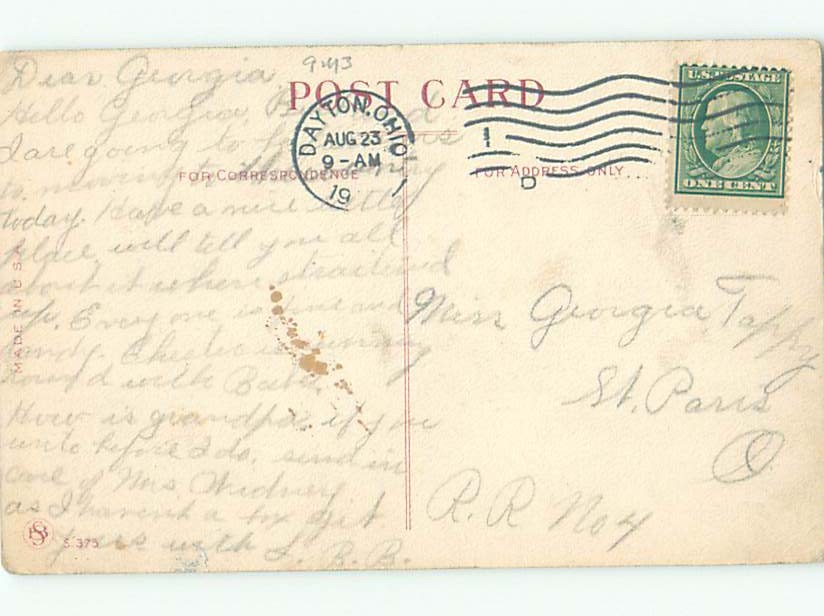 9-43
POST CARD
FOR CORRESPONDENCE
FOR ADDRESS ONLY
DAYTON, OHIO
AUG 23
9-AM
19
1
D
U.S. POSTAGE
ONE CENT
Dear Georgia
Hello Georgia, and
I are going to
to moving
today. Have a nice little
place, will tell you all
about it when straitened
up. Every one is fine and
dandy. is running
round with
How is grandpa if you
write before I do, send in
care of Mrs Widney
as I havent a box yet.
yours with L. B. B.
Miss Georgia Tappy
St. Paris
O
R. R No 4
MADE IN U.S.A.
S. 375